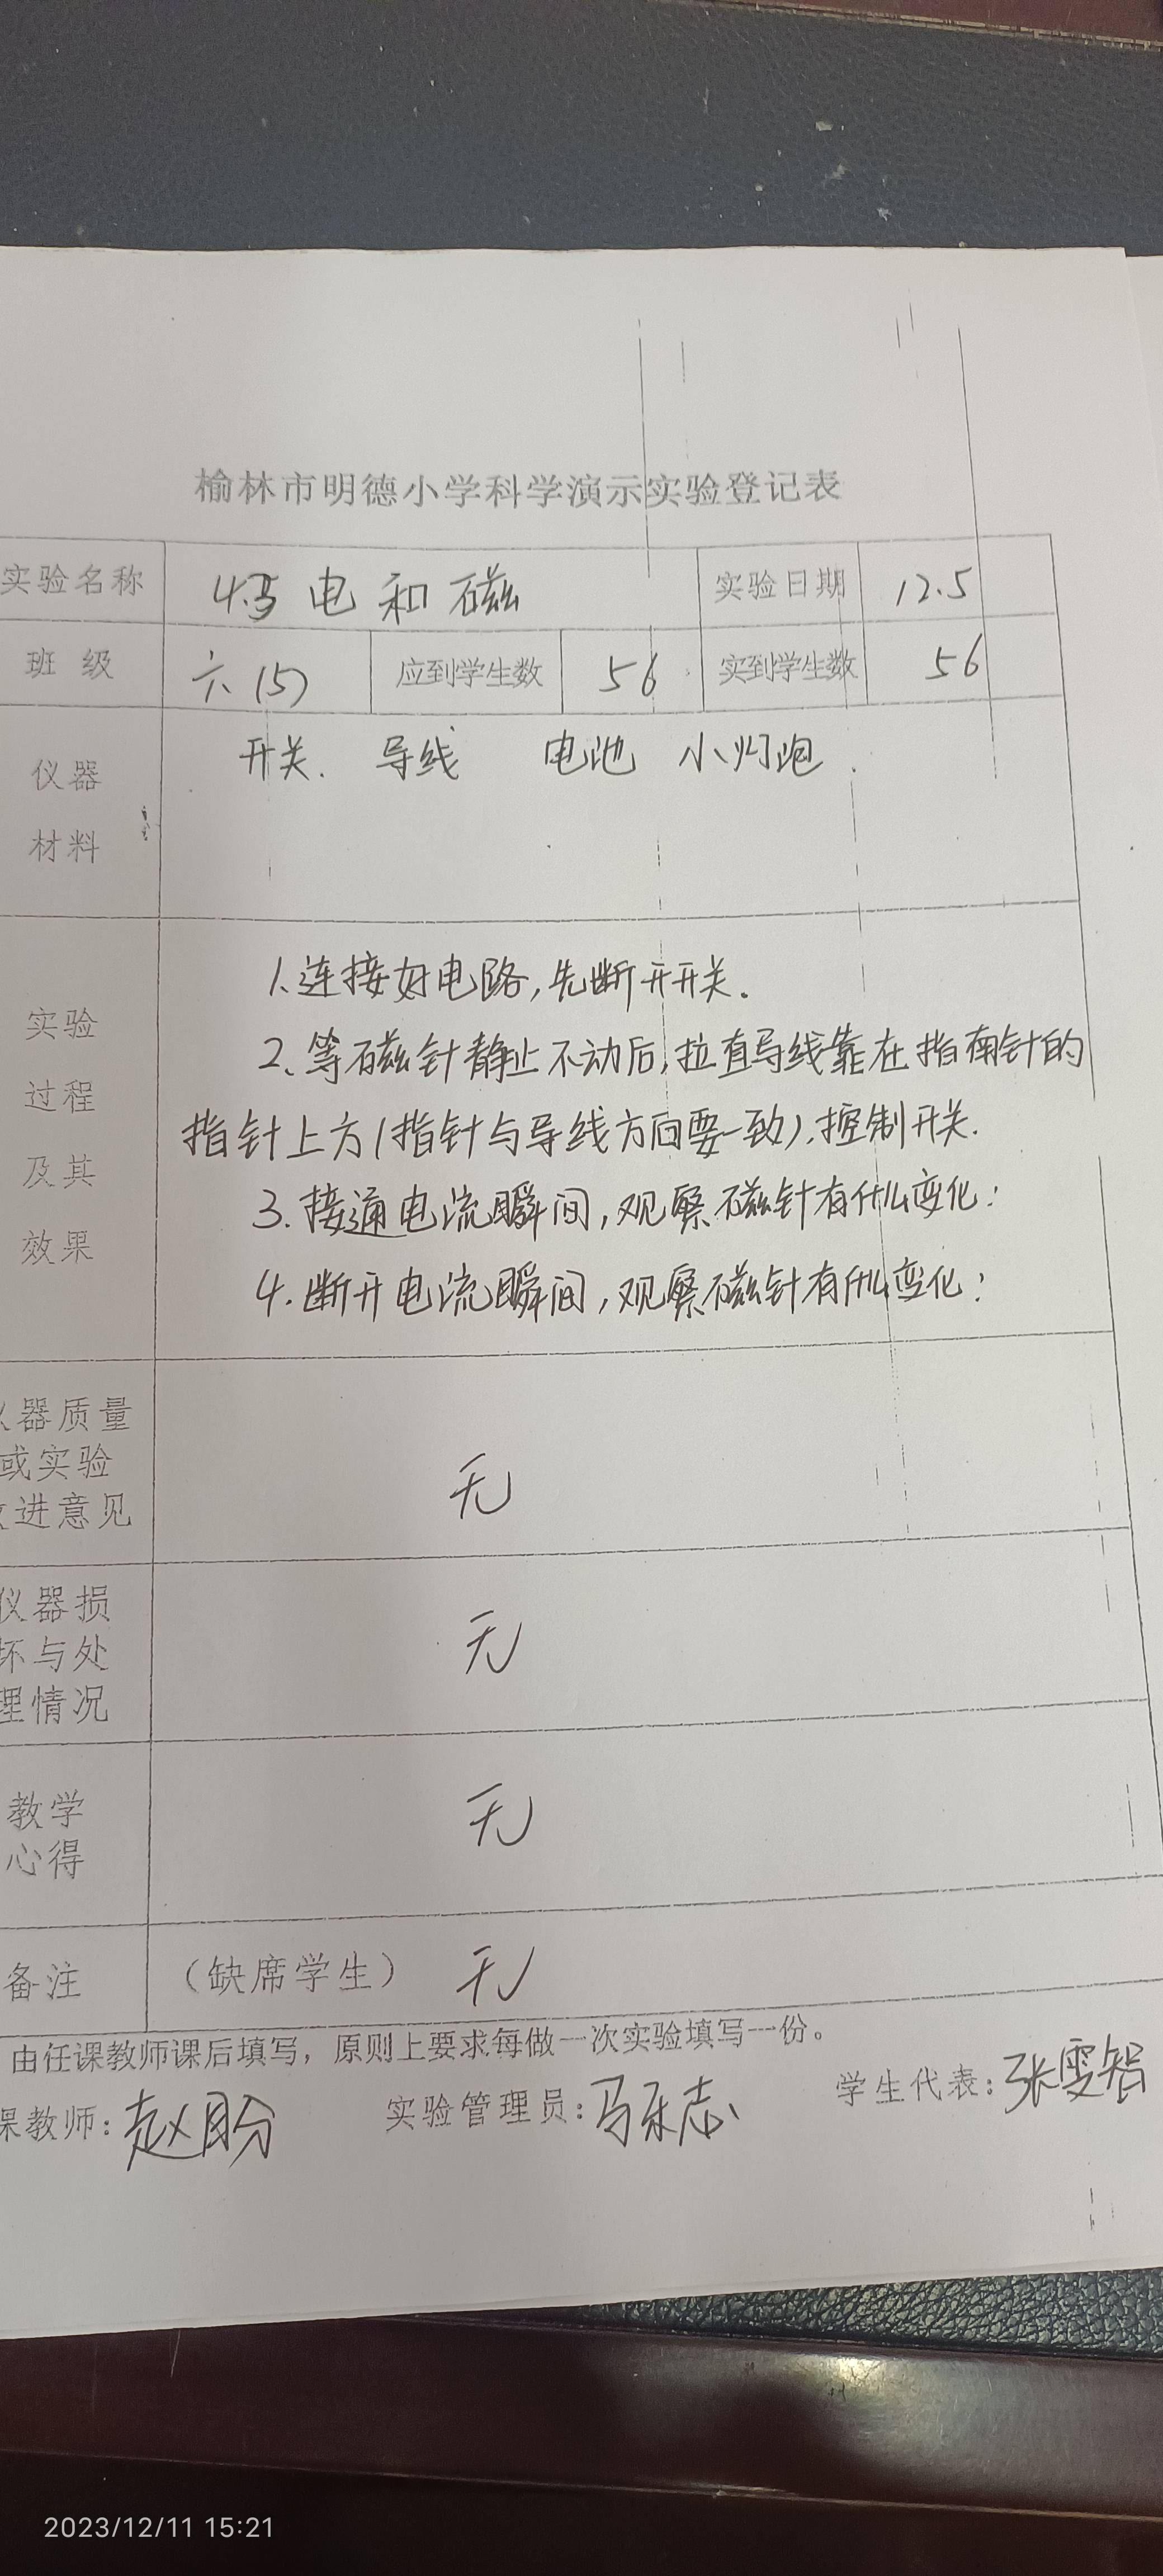 榆林市明德小学科学演示实验登记表
实验名称 4.3 电和磁 实验日期 12.5
班级 六(5) 应到学生数 56 实到学生数 56
仪器
材料
开关. 导线 电池 小灯泡.
实验
过程
及其
效果
1.连接好电路,先断开开关.
2.等磁针静止不动后,拉直导线靠在指南针的
指针上方(指针与导线方向要一致),控制开关.
3.接通电流瞬间,观察磁针有什么变化;
4.断开电流瞬间,观察磁针有什么变化;
器质量
或实验
进意见
无
仪器损
坏与处
理情况
无
教学
心得
无
备注 （缺席学生） 无
由任课教师课后填写，原则上要求每做一次实验填写一份。
课教师:赵盼 实验管理员: 学生代表:张雯智
2023/12/11 15:21